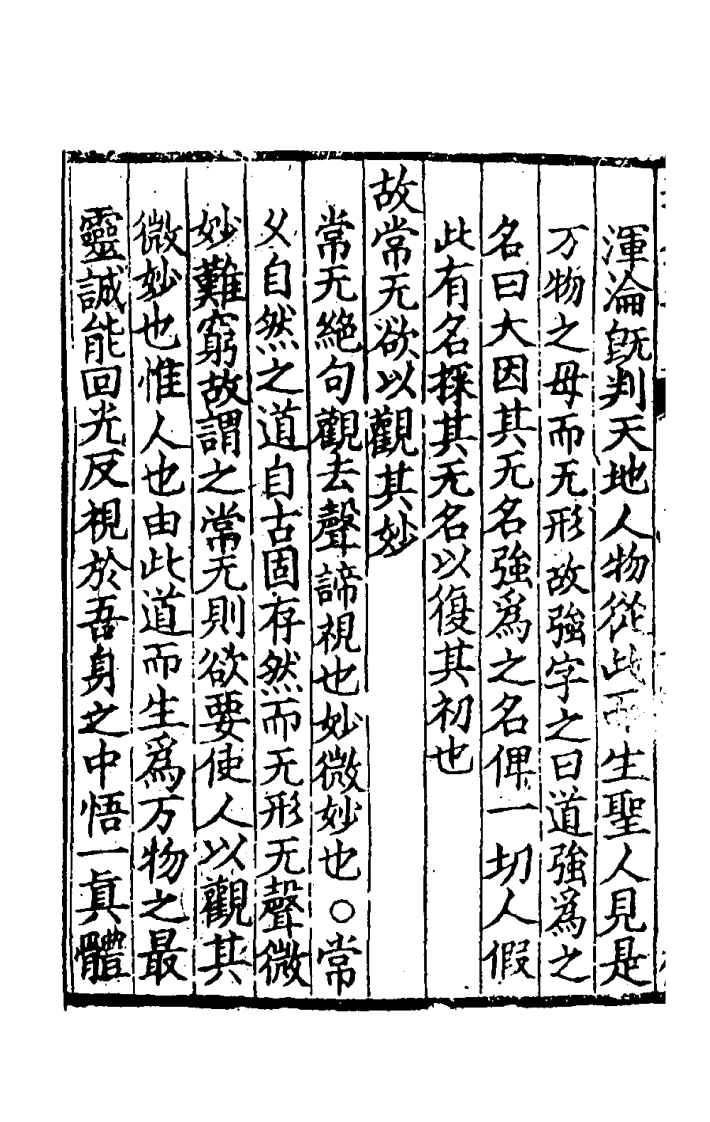 渾淪旣判天地人物從此而生聖人見是
万物之母而无形故強字之曰道強爲之
名曰大因其无名強爲之名俾一切人假
此有名探其无名以復其初也
故常无欲以觀其妙
常无絕句觀去聲諦視也妙微妙也○常
父自然之道自古固存然而无形无聲微
妙難窮故謂之常无則欲要使人以觀其
微妙也惟人也由此道而生爲万物之最
靈誠能回光反視於吾身之中悟一眞體